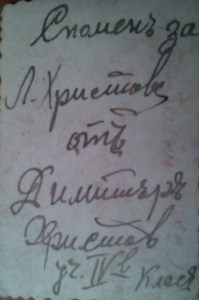 Споменъ за
Л. Христовъ
отъ
Димитъръ
Христов
уч. IV в класъ